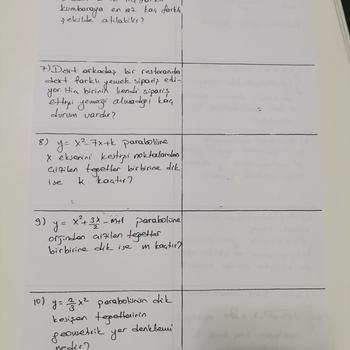 kumbaraya en az kaç farklı
şekilde atılabilir?
7) Dört arkadaş bir restoranda
dört farklı yemek sipariş edi-
yor. Hiç birinin kendi sipariş
ettiği yemeği almadığı kaç
durum vardır?
8) y = x² - 7x + k parabolüne
x eksenini kestiği noktalardan
çizilen teğetler birbirine dik
ise k kaçtır?
9) y = x² + 3x/2 - m+1 parabolüne
orjinden çizilen teğetler
birbirine dik ise m kaçtır?
10) y = 2/3 x² parabolünün dik
kesişen teğetlerinin
geometrik yer denklemi
nedir?